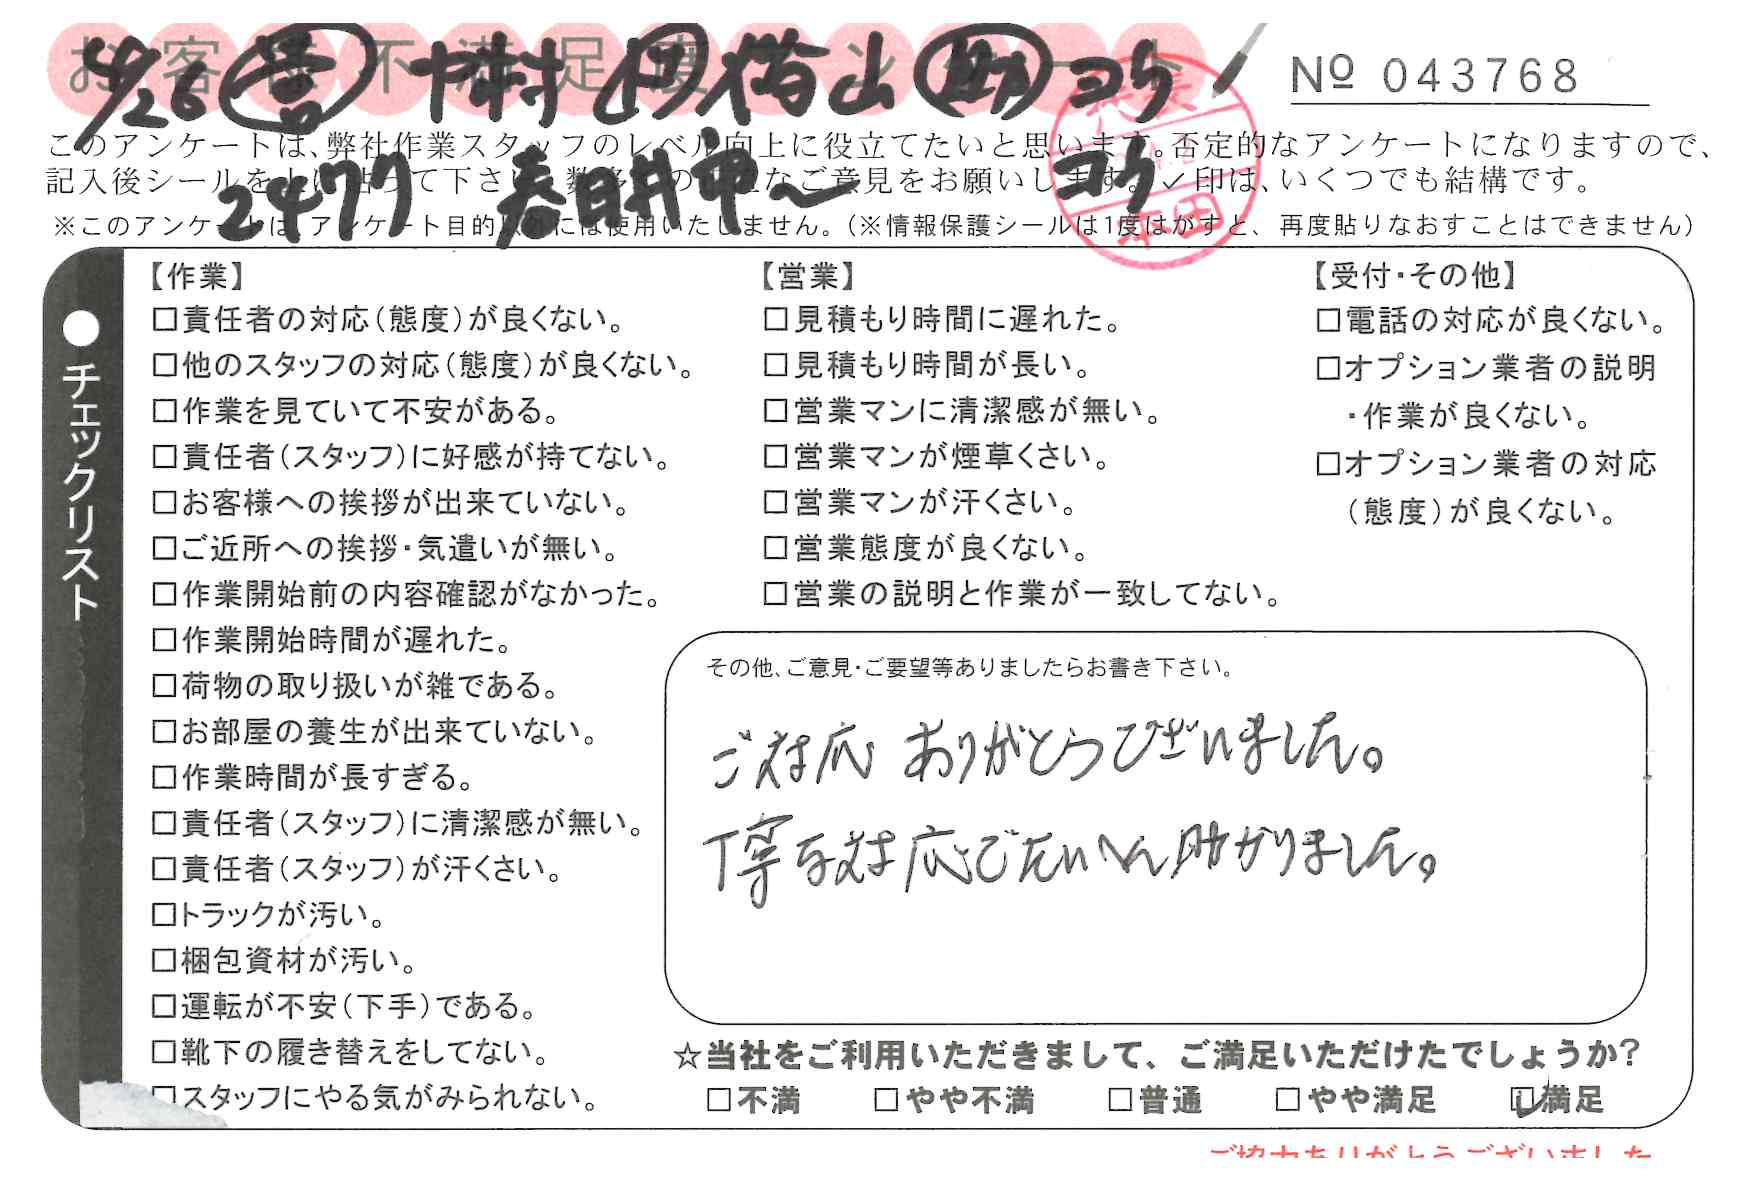 お客様不満足度アンケート
4/26 中村 横山 ヨウ
№ 043768
このアンケートは、弊社作業スタッフのレベル向上に役立てたいと思います。否定的なアンケートになりますので、
記入後シールを上に貼って下さい。数多くの正直なご意見をお願いします。✓印は、いくつでも結構です。
2477 春日井市〜 ヨウ
※このアンケートは、アンケート目的以外には使用いたしません。（※情報保護シールは1度はがすと、再度貼りなおすことはできません）
●チェックリスト
【作業】
□責任者の対応（態度）が良くない。
□他のスタッフの対応（態度）が良くない。
□作業を見ていて不安がある。
□責任者（スタッフ）に好感が持てない。
□お客様への挨拶が出来ていない。
□ご近所への挨拶・気遣いが無い。
□作業開始前の内容確認がなかった。
□作業開始時間が遅れた。
□荷物の取り扱いが雑である。
□お部屋の養生が出来ていない。
□作業時間が長すぎる。
□責任者（スタッフ）に清潔感が無い。
□責任者（スタッフ）が汗くさい。
□トラックが汚い。
□梱包資材が汚い。
□運転が不安（下手）である。
□靴下の履き替えをしてない。
□スタッフにやる気がみられない。
【営業】
□見積もり時間に遅れた。
□見積もり時間が長い。
□営業マンに清潔感が無い。
□営業マンが煙草くさい。
□営業マンが汗くさい。
□営業態度が良くない。
□営業の説明と作業が一致してない。
【受付・その他】
□電話の対応が良くない。
□オプション業者の説明
・作業が良くない。
□オプション業者の対応
（態度）が良くない。
その他、ご意見・ご要望等ありましたらお書き下さい。
ご対応 ありがとうございました。
丁寧な対応でたいへん助かりました。
☆当社をご利用いただきまして、ご満足いただけたでしょうか？
□不満 □やや不満 □普通 □やや満足 ☑満足
ご協力ありがとうございました